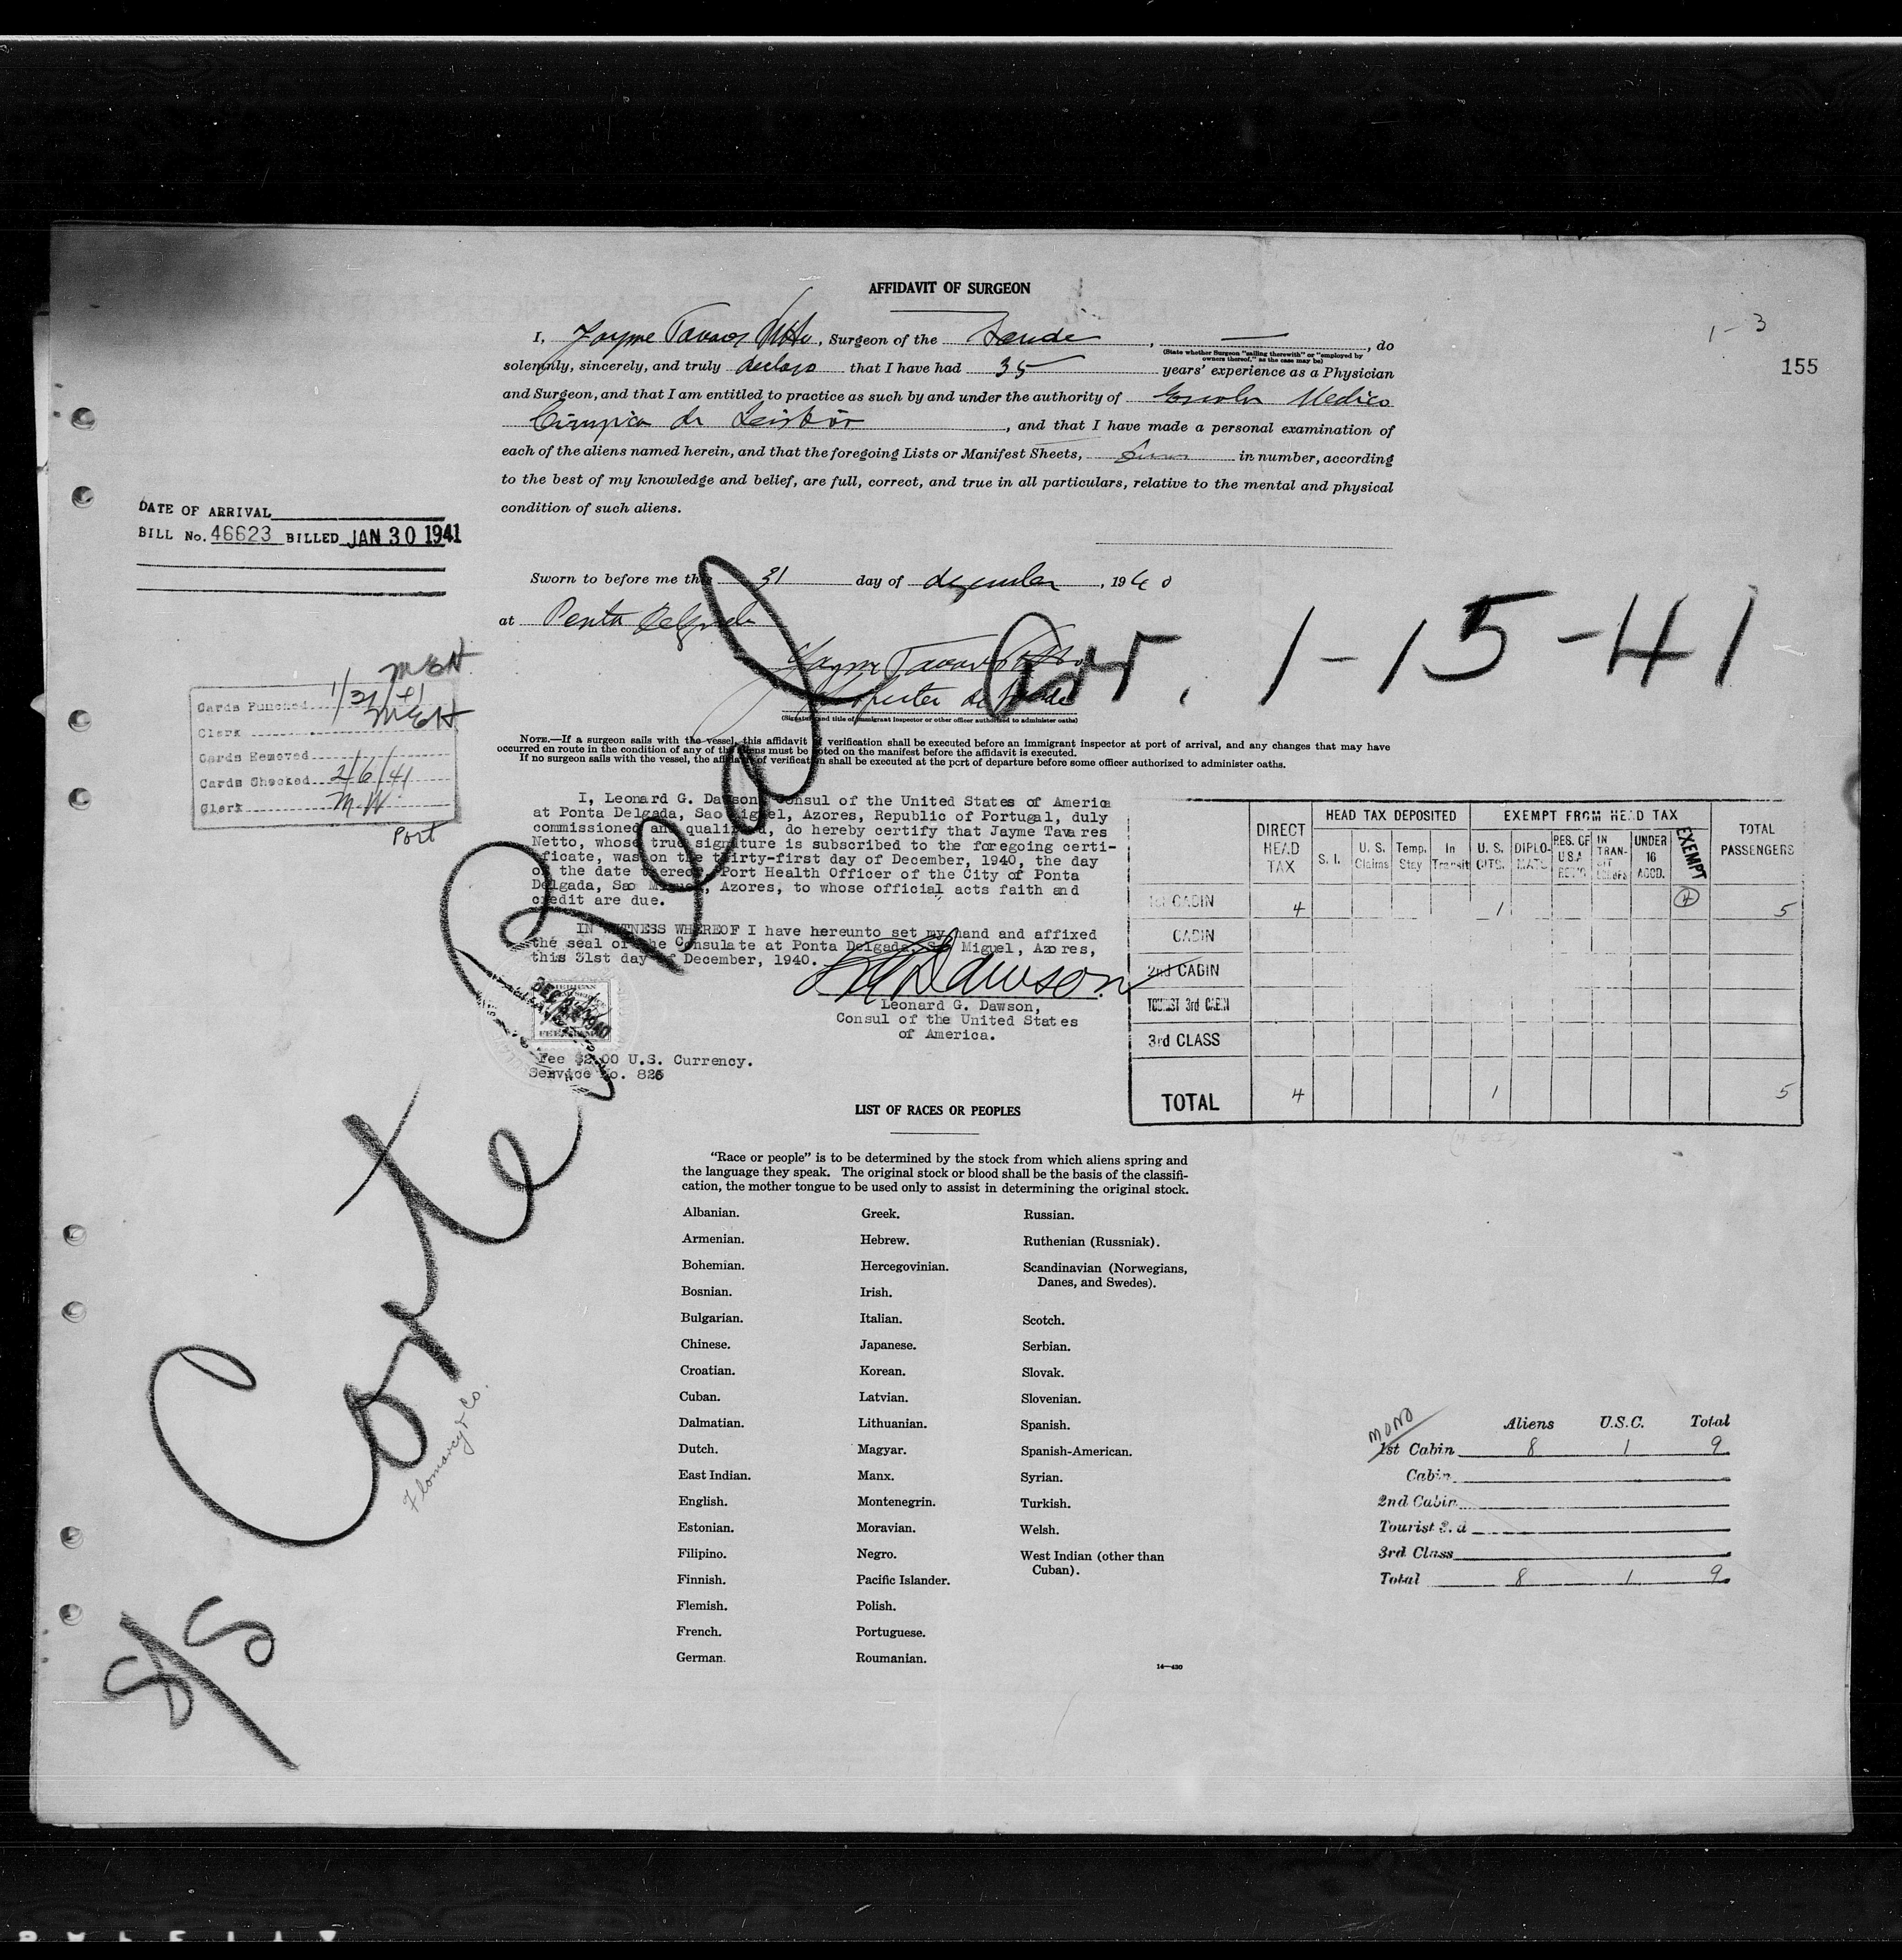 AFFIDAVIT OF SURGEON
I, Jayme Tavares Netto, Surgeon of the Saude, —, do
(State whether Surgeon "sailing therewith" or "employed by owners thereof," as the case may be)
solemnly, sincerely, and truly declare that I have had 35 years' experience as a Physician
and Surgeon, and that I am entitled to practice as such by and under the authority of Escola Medico
de, and that I have made a personal examination of
each of the aliens named herein, and that the foregoing Lists or Manifest Sheets, in number, according
to the best of my knowledge and belief, are full, correct, and true in all particulars, relative to the mental and physical
condition of such aliens.
1-3
155
DATE OF ARRIVAL
BILL No. 46623 BILLED JAN 30 1941
Sworn to before me this 31 day of dezember, 1940
at Ponta Delgada
Jayme Tavares Netto
de Saude
(Signature and title of immigrant inspector or other officer authorized to administer oaths)
Arr. 1-15-41
MEH
Cards Punched 1/31/41
Clerk MEH
Cards Removed
Cards Checked 2/6/41
Clerk M.W.
Port
NOTE.—If a surgeon sails with the vessel, this affidavit of verification shall be executed before an immigrant inspector at port of arrival, and any changes that may have
occurred en route in the condition of any of the aliens must be noted on the manifest before the affidavit is executed.
If no surgeon sails with the vessel, the affidavit of verification shall be executed at the port of departure before some officer authorized to administer oaths.
I, Leonard G. Dawson, Consul of the United States of America
at Ponta Delgada, Sao Miguel, Azores, Republic of Portugal, duly
commissioned and qualified, do hereby certify that Jayme Tavares
Netto, whose true signature is subscribed to the foregoing certi-
ficate, was on the thirty-first day of December, 1940, the day
of the date thereof, Port Health Officer of the City of Ponta
Delgada, Sao Miguel, Azores, to whose official acts faith and
credit are due.
IN WITNESS WHEREOF I have hereunto set my hand and affixed
the seal of the Consulate at Ponta Delgada, Sao Miguel, Azores,
this 31st day of December, 1940.
LG Dawson
Leonard G. Dawson,
Consul of the United States
of America.
Fee $2.00 U.S. Currency.
Service No. 826
DIRECT HEAD TAX
HEAD TAX DEPOSITED
EXEMPT FROM HEAD TAX
TOTAL PASSENGERS
S. I.
U. S. Claims
Temp. Stay
In Transit
U. S. CITS.
DIPLO-MATS
RES. OF U.S.A. RET'G
IN TRAN-SIT
UNDER 16 ACCD.
EXEMPT
1st CABIN 4 1 4 5
CABIN
2nd CABIN
TOURIST 3rd CABIN
3rd CLASS
TOTAL 4 1 5
S/S Corte Real
Flomarcy & Co.
LIST OF RACES OR PEOPLES
"Race or people" is to be determined by the stock from which aliens spring and
the language they speak. The original stock or blood shall be the basis of the classifi-
cation, the mother tongue to be used only to assist in determining the original stock.
Albanian.
Armenian.
Bohemian.
Bosnian.
Bulgarian.
Chinese.
Croatian.
Cuban.
Dalmatian.
Dutch.
East Indian.
English.
Estonian.
Filipino.
Finnish.
Flemish.
French.
German.
Greek.
Hebrew.
Hercegovinian.
Irish.
Italian.
Japanese.
Korean.
Latvian.
Lithuanian.
Magyar.
Manx.
Montenegrin.
Moravian.
Negro.
Pacific Islander.
Polish.
Portuguese.
Roumanian.
Russian.
Ruthenian (Russniak).
Scandinavian (Norwegians,
Danes, and Swedes).
Scotch.
Serbian.
Slovak.
Slovenian.
Spanish.
Spanish-American.
Syrian.
Turkish.
Welsh.
West Indian (other than
Cuban).
14—430
Aliens U.S.C. Total
MONO
1st Cabin 8 1 9
Cabin
2nd Cabin
Tourist 3rd
3rd Class
Total 8 1 9